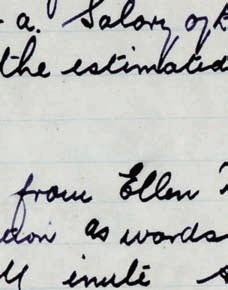 a. Salary of
the estimated
from Ellen
as words